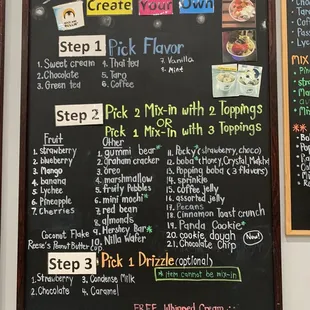 Create Your Own
Step 1 Pick Flavor
1. Sweet cream
2. Chocolate
3. Green tea
4. Thai tea
5. Taro
6. Coffee
7. Vanilla
8. Mint
Step 2 Pick 2 Mix-in with 2 Toppings
OR
Pick 1 Mix-in with 3 Toppings
Fruit
1. strawberry
2. blueberry
3. Mango
4. banana
5. Lychee
6. Pineapple
7. Cherries
Coconut Flake
Reese's Peanut Butter Cup
Other
1. gummi bear*
2. graham cracker
3. oreo
4. marshmallow
5. fruity pebbles
6. mini mochi*
7. red bean
8. almonds
9. Hershey Bar*
10. Nilla Wafer
11. Pocky*(strawberry, choco)
12. boba*(Honey, Crystal, Matcha)
13. Popping boba (3 flavors)
14. sprinkle
15. coffee jelly
16. assorted jelly
17. Pecans
18. Cinnamon Toast crunch
19. Panda Cookie*
20. cookie dough New!
21. Chocolate Chip
Step 3 Pick 1 Drizzle (optional)
1. Strawberry
2. Chocolate
3. Condense Milk
4. Caramel
* item cannot be mix-in
FREE Whipped Cream